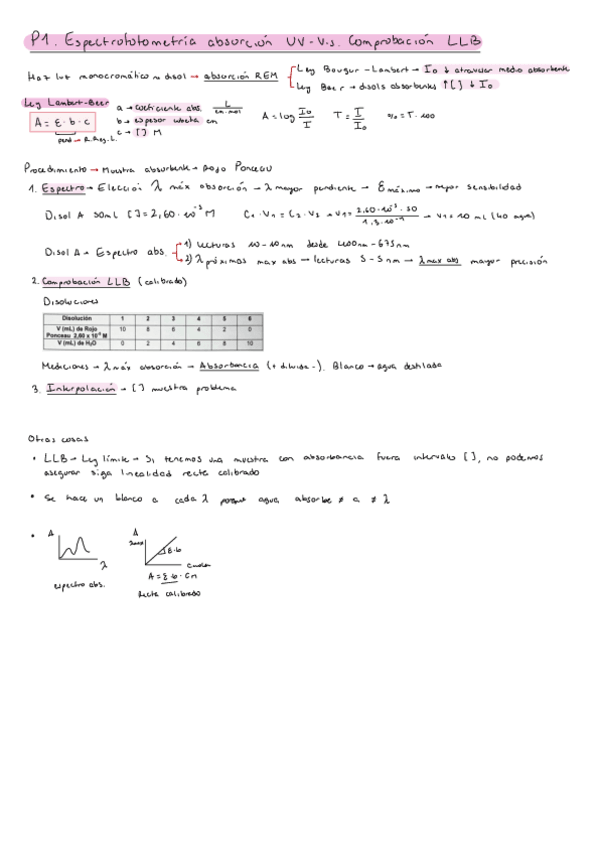 P1. Espectrofotometría absorción UV-Vis. Comprobación LLB
Haz luz monocromático ~ disol → absorción REM
Ley Bouguer-Lambert → I₀ ↓ atravesar medio absorbente
Ley Beer → disols absorbentes ↑[ ] ↓ I₀
Ley Lambert-Beer
A = ε · b · c
pend → R. Reg. L.
a → coeficiente abs. L / cm·mol
b → espesor cubeta cm
c → [ ] M
A = log I₀/I   T = I/I₀   % = T · 100
Procedimiento → Muestra absorbente → Rojo Ponceau
1. Espectro → Elección λ máx absorción → λ mayor pendiente → ε máximo → mayor sensibilidad
Disol A 50mL [ ] = 2,60 · 10⁻³ M   C₁ · V₁ = C₂ · V₂ → V₁ = → V₁ = 10 ml (40 agua)
Disol A → Espectro abs.
1) Lecturas 10-10nm desde 400nm-675nm
2) λ próximos max abs → lecturas 5-5nm → λ max abs mayor precisión
2. Comprobación LLB (calibrado)
Disoluciones
Disolución 1 2 3 4 5 6
V (mL) de Rojo Ponceau 2,60 x 10⁻⁴ M 10 8 6 4 2 0
V (mL) de H₂O 0 2 4 6 8 10
Mediciones → λ máx absorción → Absorbancia (+ diluida -). Blanco → agua destilada
3. Interpolación → [ ] muestra problema
Otras cosas
• LLB → Ley límite → Si tenemos una muestra con absorbancia fuera intervalo [ ], no podemos
asegurar siga linealidad recta calibrado
• Se hace un blanco a cada λ porque agua absorbe ≠ a ≠ λ
• A
λ
espectro abs.
A
λmax
ε·b
A = ε·b · Cn
Recta calibrado